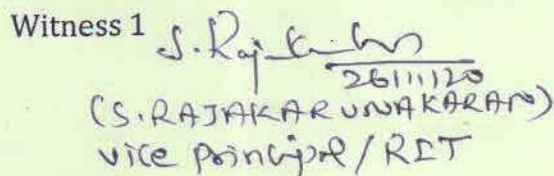 Witness 1 S. Raj
26/11/20
(S. RAJAKARUNAKARAN)
Vice principal / RIT